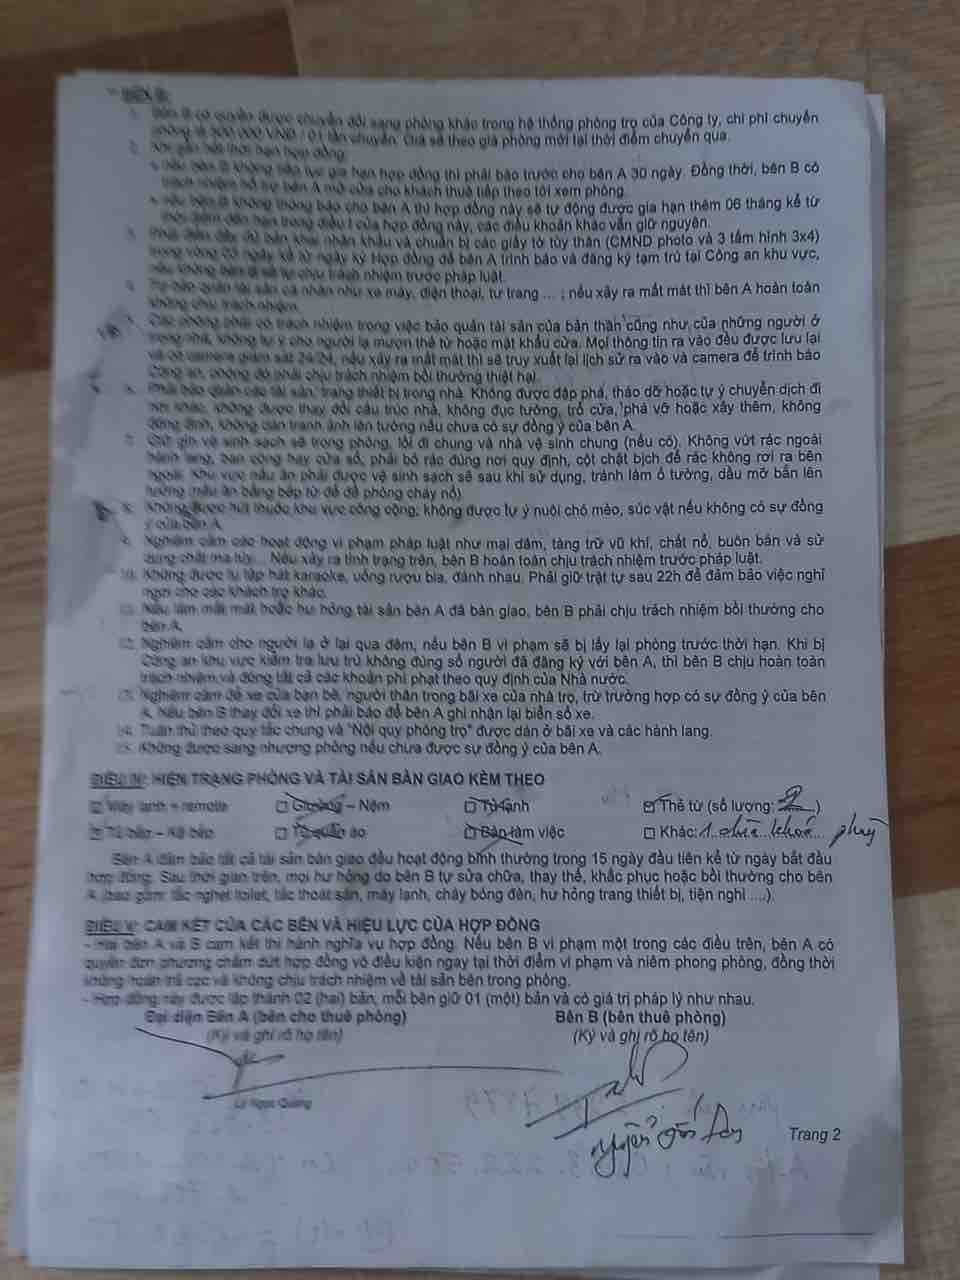 * BÊN B:
1. Bên B có quyền được chuyển đổi sang phòng khác trong hệ thống phòng trọ của Công ty, chi phí chuyển
phòng là 500.000 VNĐ / 01 lần chuyển. Giá sẽ theo giá phòng mới tại thời điểm chuyển qua.
2. Khi gần hết thời hạn hợp đồng:
+ Nếu bên B không tiếp tục gia hạn hợp đồng thì phải báo trước cho bên A 30 ngày. Đồng thời, bên B có
trách nhiệm hỗ trợ bên A mở cửa cho khách thuê tiếp theo tới xem phòng.
+ Nếu bên B không thông báo cho bên A thì hợp đồng này sẽ tự động được gia hạn thêm 06 tháng kể từ
thời điểm đến hạn trong điều I của hợp đồng này, các điều khoản khác vẫn giữ nguyên.
3. Phải điền đầy đủ bản khai nhân khẩu và chuẩn bị các giấy tờ tùy thân (CMND photo và 3 tấm hình 3x4)
trong vòng 03 ngày kể từ ngày ký Hợp đồng để bên A trình báo và đăng ký tạm trú tại Công an khu vực,
nếu không bên B sẽ tự chịu trách nhiệm trước pháp luật.
4. Tự bảo quản tài sản cá nhân như xe máy, điện thoại, tư trang ... ; nếu xảy ra mất mát thì bên A hoàn toàn
không chịu trách nhiệm.
5. Các phòng phải có trách nhiệm trong việc bảo quản tài sản của bản thân cũng như của những người ở
trong nhà, không tự ý cho người lạ mượn thẻ từ hoặc mật khẩu cửa. Mọi thông tin ra vào đều được lưu lại
và có camera giám sát 24/24, nếu xảy ra mất mát thì sẽ truy xuất lại lịch sử ra vào và camera để trình báo
Công an, phòng đó phải chịu trách nhiệm bồi thường thiệt hại.
6. Phải bảo quản các tài sản, trang thiết bị trong nhà. Không được đập phá, tháo dỡ hoặc tự ý chuyển dịch đi
nơi khác, không được thay đổi cấu trúc nhà, không đục tường, trổ cửa, phá vỡ hoặc xây thêm, không
đóng đinh, không dán tranh ảnh lên tường nếu chưa có sự đồng ý của bên A.
7. Giữ gìn vệ sinh sạch sẽ trong phòng, lối đi chung và nhà vệ sinh chung (nếu có). Không vứt rác ngoài
hành lang, ban công hay cửa sổ, phải bỏ rác đúng nơi quy định, cột chặt bịch để rác không rơi ra bên
ngoài. Khu vực nấu ăn phải được vệ sinh sạch sẽ sau khi sử dụng, tránh làm ố tường, dầu mỡ bắn lên
tường (nấu ăn bằng bếp từ để đề phòng cháy nổ).
8. Không được hút thuốc khu vực công cộng; không được tự ý nuôi chó mèo, súc vật nếu không có sự đồng
ý của bên A.
9. Nghiêm cấm các hoạt động vi phạm pháp luật như mại dâm, tàng trữ vũ khí, chất nổ, buôn bán và sử
dụng chất ma túy... Nếu xảy ra tình trạng trên, bên B hoàn toàn chịu trách nhiệm trước pháp luật.
10. Không được tụ tập hát karaoke, uống rượu bia, đánh nhau. Phải giữ trật tự sau 22h để đảm bảo việc nghỉ
ngơi cho các khách trọ khác.
11. Nếu làm mất mát hoặc hư hỏng tài sản bên A đã bàn giao, bên B phải chịu trách nhiệm bồi thường cho
bên A.
12. Nghiêm cấm cho người lạ ở lại qua đêm, nếu bên B vi phạm sẽ bị lấy lại phòng trước thời hạn. Khi bị
Công an khu vực kiểm tra lưu trú không đúng số người đã đăng ký với bên A, thì bên B chịu hoàn toàn
trách nhiệm và đóng tất cả các khoản phí phạt theo quy định của Nhà nước.
13. Nghiêm cấm để xe của bạn bè, người thân trong bãi xe của nhà trọ, trừ trường hợp có sự đồng ý của bên
A. Nếu bên B thay đổi xe thì phải báo để bên A ghi nhận lại biển số xe.
14. Tuân thủ theo quy tắc chung và "Nội quy phòng trọ" được dán ở bãi xe và các hành lang.
15. Không được sang nhượng phòng nếu chưa được sự đồng ý của bên A.
ĐIỀU IV: HIỆN TRẠNG PHÒNG VÀ TÀI SẢN BÀN GIAO KÈM THEO
☐ Máy lạnh + remote ☐ Giường – Nệm ☐ Tủ lạnh ☑ Thẻ từ (số lượng: 2 )
☐ Tủ bếp – Kệ bếp ☐ Tủ quần áo ☐ Bàn làm việc ☐ Khác: 1 chìa khoá phòng
Bên A đảm bảo tất cả tài sản bàn giao đều hoạt động bình thường trong 15 ngày đầu tiên kể từ ngày bắt đầu
hợp đồng. Sau thời gian trên, mọi hư hỏng do bên B tự sửa chữa, thay thế, khắc phục hoặc bồi thường cho bên
A (bao gồm: tắc nghẹt toilet, tắc thoát sàn, máy lạnh, cháy bóng đèn, hư hỏng trang thiết bị, tiện nghi ....).
ĐIỀU V: CAM KẾT CỦA CÁC BÊN VÀ HIỆU LỰC CỦA HỢP ĐỒNG
- Hai bên A và B cam kết thi hành nghĩa vụ hợp đồng. Nếu bên B vi phạm một trong các điều trên, bên A có
quyền đơn phương chấm dứt hợp đồng vô điều kiện ngay tại thời điểm vi phạm và niêm phong phòng, đồng thời
không hoàn trả cọc và không chịu trách nhiệm về tài sản bên trong phòng.
- Hợp đồng này được lập thành 02 (hai) bản, mỗi bên giữ 01 (một) bản và có giá trị pháp lý như nhau.
Đại diện Bên A (bên cho thuê phòng) Bên B (bên thuê phòng)
(Ký và ghi rõ họ tên) (Ký và ghi rõ họ tên)
Lê Ngọc Quang
Nguyễn
Trang 2